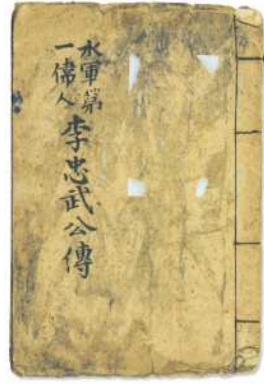 水軍第
一偉人
李忠武公傳